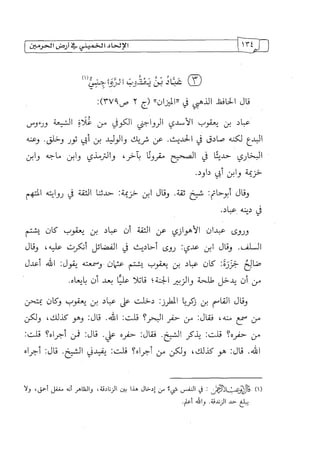 ١٣٤
الإلحاد الخميني في أرض الحرمين
٣ عَبَّادُ بْنُ يَعْقُوبَ الرَّوَاجِنِيُّ (١)
قال الحافظ الذهبي في «الميزان» (ج ٢ ص٣٧٩):
عباد بن يعقوب الأسدي الرواجني الكوفي من غُلاةِ الشيعة ورءوس
البدع لكنه صادق في الحديث. عن شريك والوليد بن أبي ثور وخلق. وعنه
البخاري حديثًا في الصحيح مقرونًا بآخر، والترمذي وابن ماجه وابن
خزيمة وابن أبي داود.
وقال أبوحاتم: شيخ ثقة. وقال ابن خزيمة: حدثنا الثقة في روايته المتهم
في دينه عباد.
وروى عبدان الأهوازي عن الثقة أن عباد بن يعقوب كان يشتم
السلف. وقال ابن عدي: روى أحاديث في الفضائل أنكرت عليه، وقال
صَالِحُ جَزَرَةُ: كان عباد بن يعقوب يشتم عثمان وسمعته يقول: الله أعدل
من أن يدخل طلحة والزبير الجنة؛ قاتلا عليًّا بعد أن بايعاه.
وقال القاسم بن زكريا المطرز: دخلت على عباد بن يعقوب وكان يمتحن
من سمع منه، فقال: من حفر البحر؟ قلت: الله. قال: هو كذلك، ولكن
من حفره؟ قلت: يذكر الشيخ. فقال: حفره علي. قال: فمن أجراه؟ قلت:
الله. قال: هو كذلك، ولكن من أجراه؟ قلت: يفيدني الشيخ. قال: أجراه
(١) : في النفس شيء من إدخال هذا بين الزنادقة، والظاهر أنه مغفل أحمق، ولا
يبلغ حد الزندقة. والله أعلم.